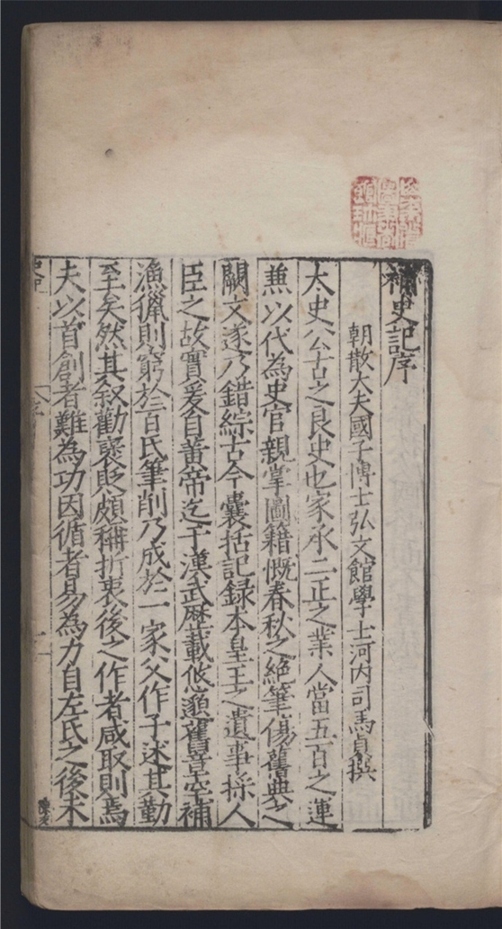 補史記序
朝散大夫國子博士弘文館學士河内司馬貞撰
太史公古之良史也家承二正之業人當五百之運
兼以代為史官親掌圖籍慨春秋之絶筆傷舊典之
闕文遂乃錯綜古今囊括記録本皇王之遺事採人
臣之故實爰自黄帝迄于漢武歴載悠邈舊章罕補
漁獵則窮於百氏筆削乃成於一家父作子述其勤
至矣然其叙勸褒貶頗稱折衷後之作者咸取則焉
夫以首創者難為功因循者易為力自左氏之後未